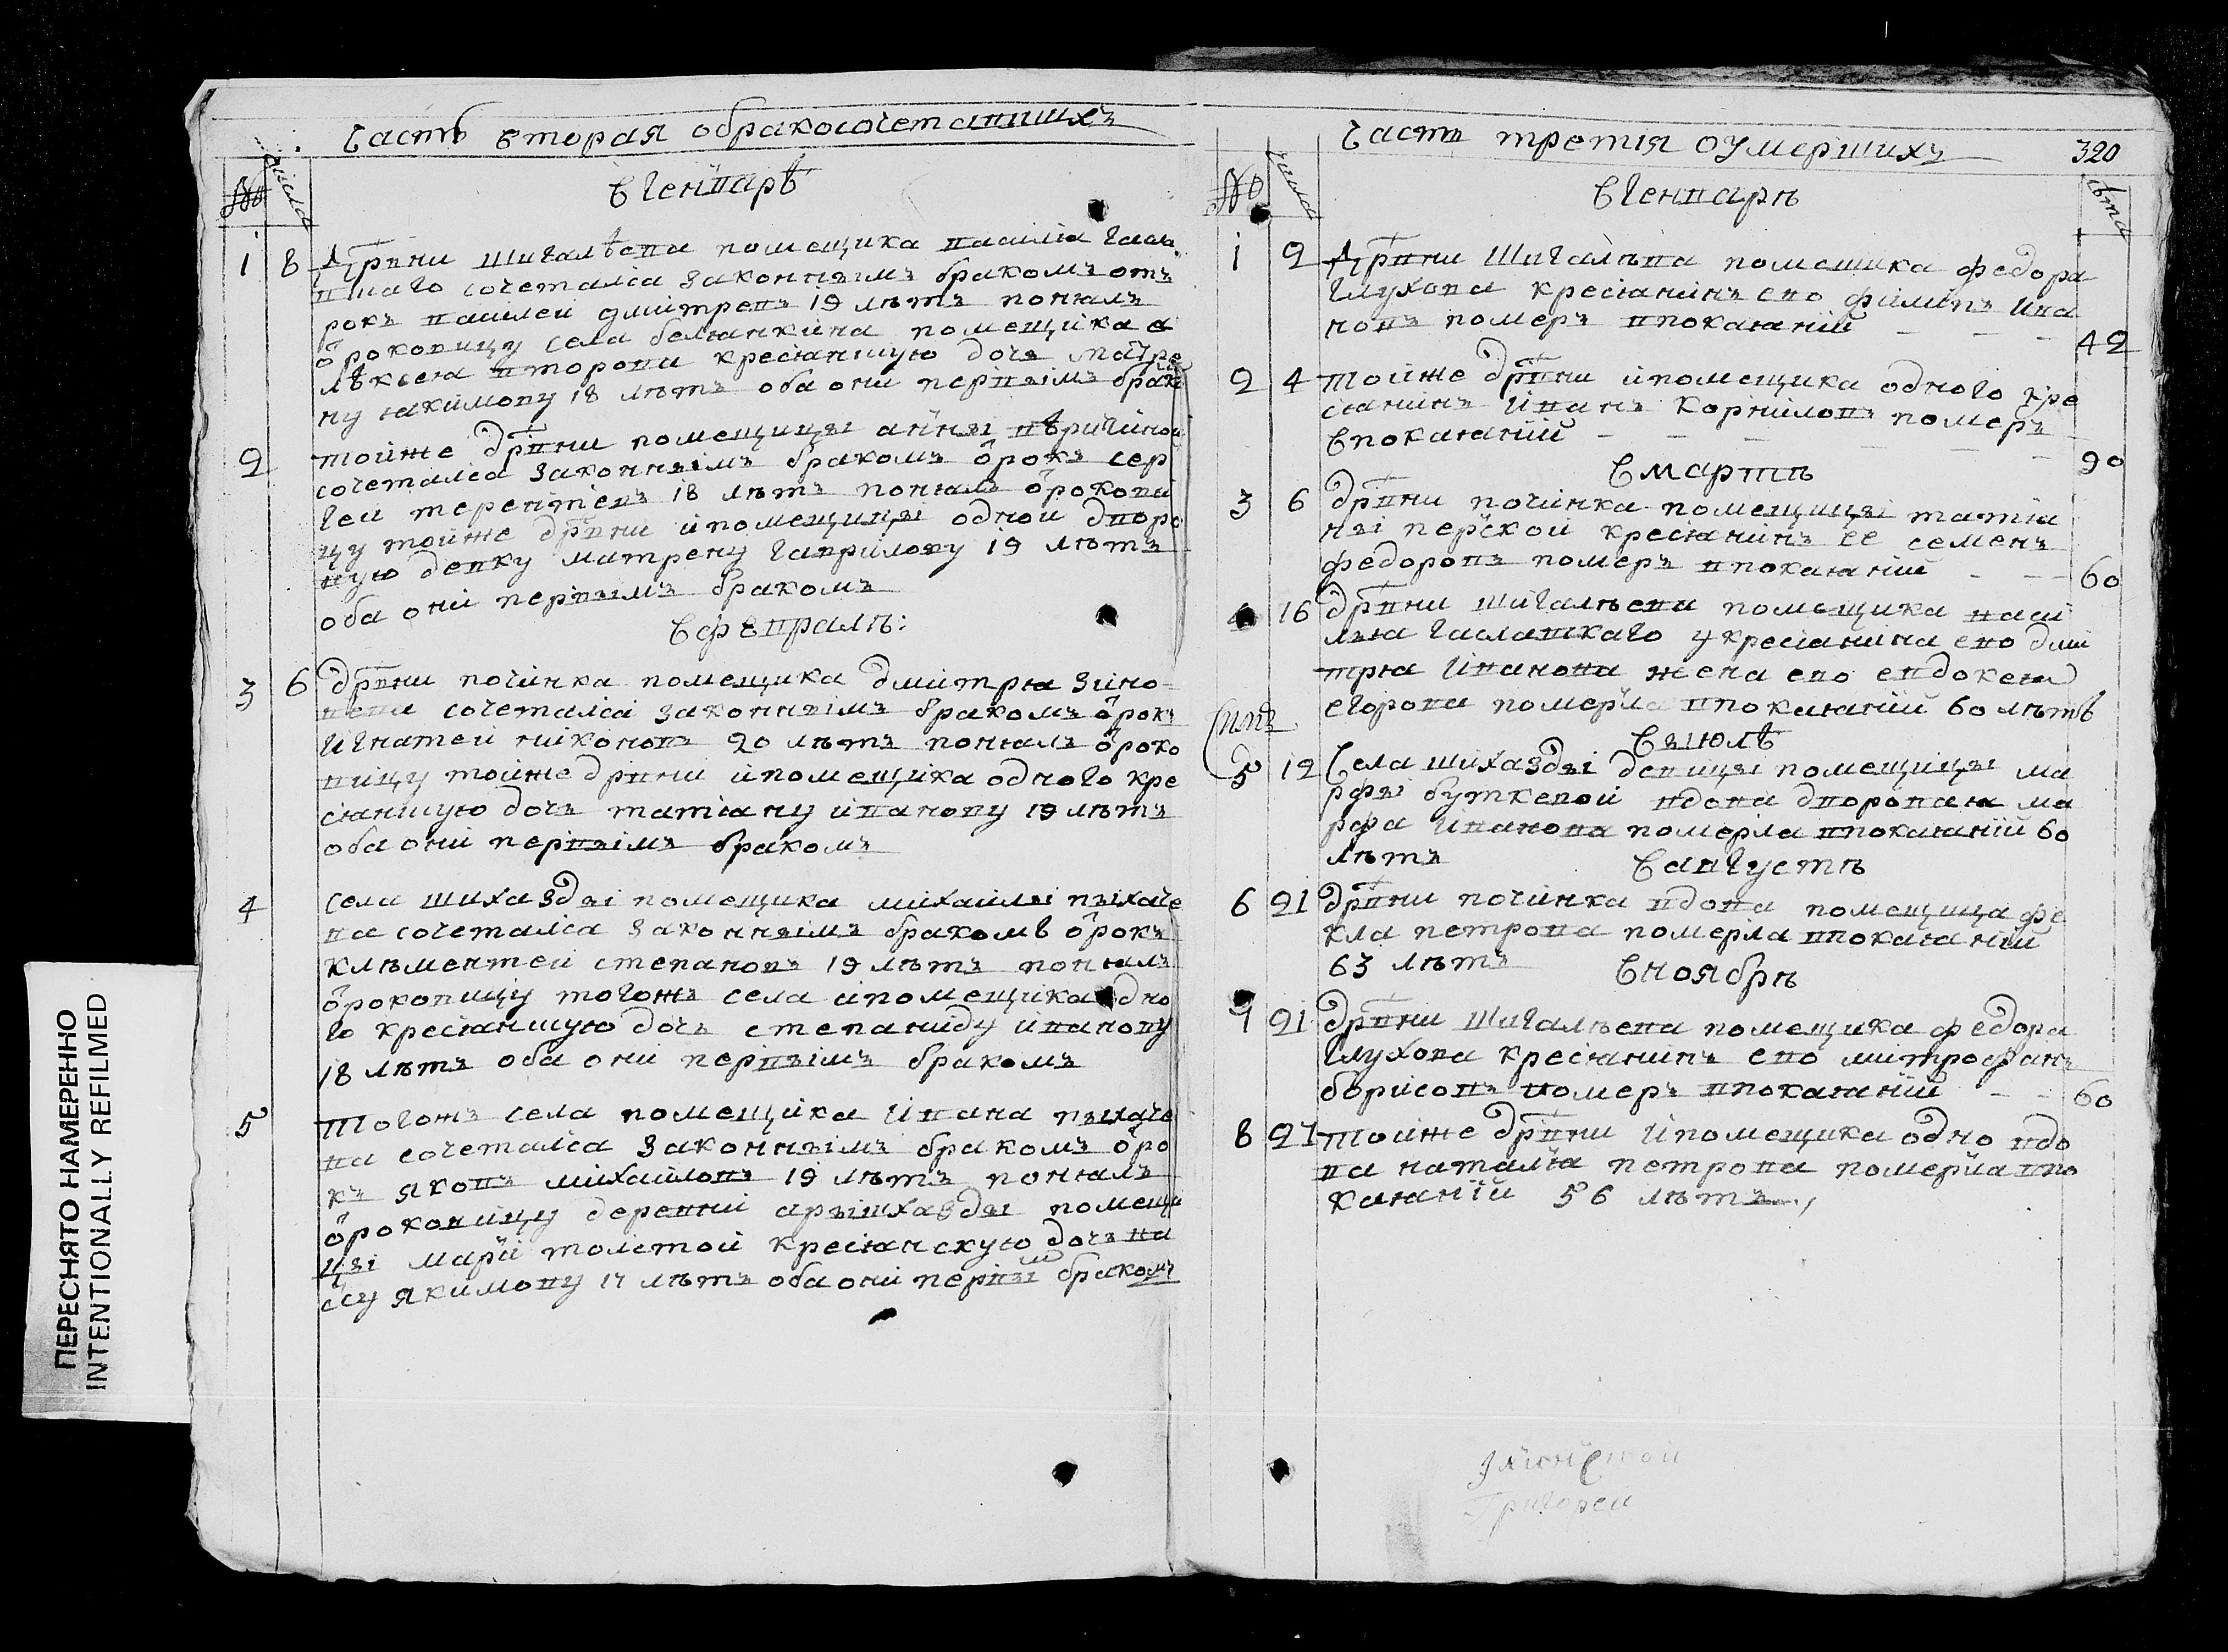 Часть вторая обракосочетавшихъ
№
числа
Вгенварѣ
1 8 Дрвни шигалѣева помещика василіа
вшаго сочеталса законнымъ бракомъ от
рокъ василеи дмитревъ 19 лѣтъ понялъ
ѻроковицу села белянкина помещика а
лѣксея второва кресіаншую дочь матре
ну якимову 18 лѣтъ оба они первымъ брак
2 тойже дрвни помещицы анны
сочеталса законнымъ бракомъ ѻрокъ сер
геи терентіевъ 18 лѣтъ понялъ ѻрокови
цу тойже дрвни ипомещицы однои дворо
вую девку матрену гаврилову 19 лѣтъ
оба они первымъ бракомъ
Вфевралѣ:
3 6 дрвни починка помещика дмитрія зино-
вева сочеталса законнымъ бракомъ ѻрокъ
Игнатеи никоновъ 20 лѣтъ понялъ ѻроко
вицу тойже дрвни ипомещика одного кре
сіаншую дочь татіану иванову 19 лѣтъ
оба они первымъ бракомъ
4 села шихазды помещика михаилы пыхаче
ва сочеталса законнымъ бракомъ ѻрокъ
клѣментеи степановъ 19 лѣтъ понялъ
ѻроковицу тогожъ села ипомещика одно
го кресіаншую дочь степаниду иванову
18 лѣтъ оба они первымъ бракомъ
5 Тогожъ села помещика Ивана пыхаче
ва сочеталса законнымъ бракомъ ѻро
къ яковъ михаиловъ 19 лѣтъ понялъ
ѻроковицу деревни арышхазды помещи
цы марїи толстой кресіанскую дочь на
ссу якимову 17 лѣтъ оба они первы бракомъ
Часть третія оумершихъ
320
№
числа
Вгенварѣ
лѣта
1 2 Дрвни Шигалѣва помещика федора
глухова кресіанинъ ево филипъ ива
новъ померъ впокаянїи - - 42
2 4 тойже дрвни ипомещика одного кре
сіанинъ Иванъ корниловъ померъ
впокаянїи - - - - 90
Вмартѣ
3 6 дрвни починка помещицы татіа
ны перской кресіанинъ ее семенъ
федоровъ померъ впокаянїи - - 60
4 16 дрвни шигалѣева помещика васи
лья у кресіанина ево дми
трія Иванова жена ево евдокея
егорова померла впокаянїи 60 лѣтъ
Вѣіюлѣ
5 12 Села шихазды девицы помещицы ма
рфы буткевой вдова дворовая ма
рфа иванова померла впокаянїи 60
лѣтъ
Вавгустѣ
6 21 дрвни починка вдова помещица фе
кла петрова померла впокаянїи
63 лѣтъ
Вноябрѣ
7 21 дрвни Шигалѣева помещика федора
глухова кресіанинъ ево митрофанъ
борисовъ померъ впокаянїи - - 60
8 27 тойже дрвни Ипомещика одно вдо
ва наталья петрова померла впо
каянїи 56 лѣтъ
Григорей
ПЕРЕСНЯТО НАМЕРЕННО
INTENTIONALLY REFILMED